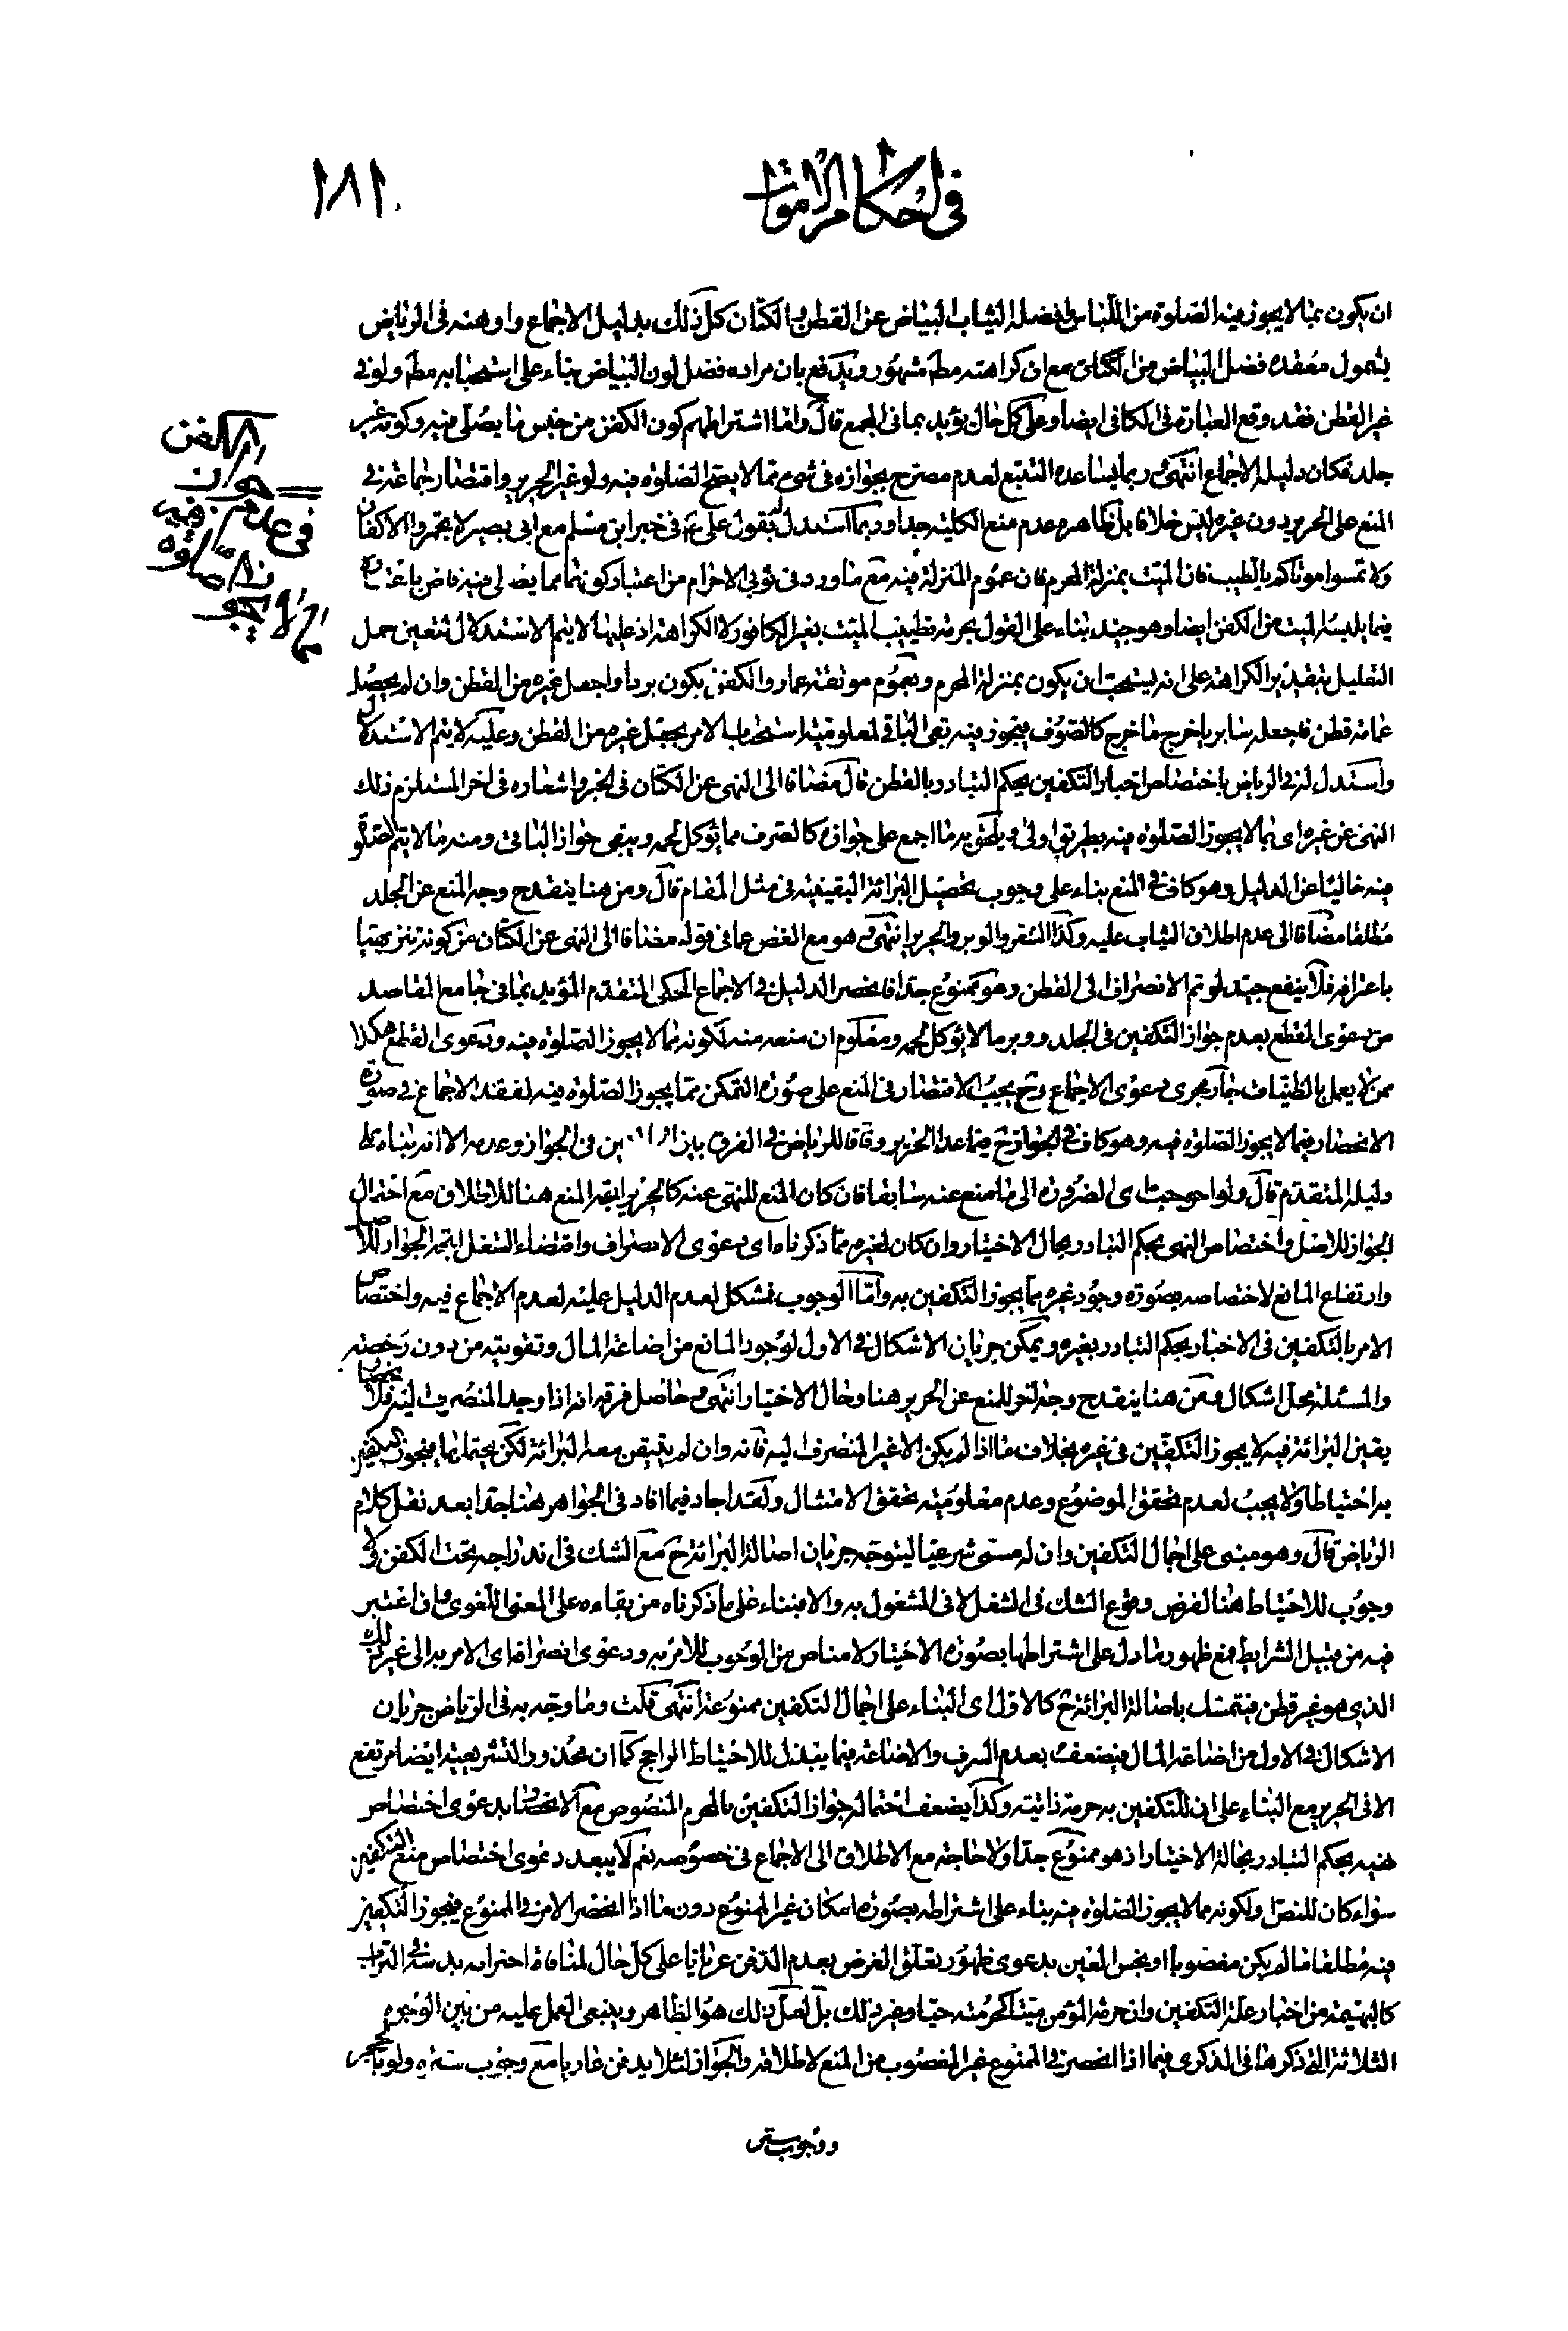 في احكام الاموات
١٨١
ان يكون مما لا يجوز فيه الصلوة من اللباس وافضله الثياب البياض من القطن والكتان كل ذلك بدليل الاجماع واوهنه في الرياض
بشمول معقده فضل البياض من الكتان مع ان كراهته مطلقا مشهور ويدفع بان مراده فضل لون البياض بناء على استحبابه مطلقا ولو في
غير القطن فقد وقع العبارة في الكافي ايضا وعلى كل حال يؤيد بما في المجمع قال واما اشتراطهم كون الكفن من جنس ما يصلى فيه وكونه غير
جلد فكان دليله الاجماع انتهى وربما يساعده التتبع لعدم مصرح بجوازه في شيء مما لا يصح الصلوة فيه ولو غير الحرير واقتصار جماعة في
المنع على الحرير دون غيره ليس خلافا بل ظاهره عدم منع الكلية جدا وربما استدل له بقول علي ع في خبر ابن مسلم مع ابي بصير لا تجمروا الاكفان
ولا تمسوا موتاكم بالطيب فان الميت بمنزلة المحرم فان عموم المنزلة فيه مع ما ورد في ثوبي الاحرام من اعتبار كونهما مما يصلى فيه قاض باعتباره
فيما يلبسه الميت من الكفن ايضا وهو جيد بناء على القول بحرمة تطييب الميت بغير الكافور لا الكراهة اذ عليها لا يتم الاستدلال لتعين حمل
التعليل بتقدير الكراهة على انه يستحب ان يكون بمنزلة المحرم وبعموم موثقة عمار والكفن يكون بردا واجعل غيره من القطن وان لم يحصل
عمامة قطن فاجعله سابريا خرج ما خرج كالصوف فيجوز فيه بقى الباقي لمعلومية استحباب الامر بجعل غيره من القطن وعليه لا يتم الاستدلال
واستدل له في الرياض باختصاص اخبار التكفين بحكم التبادر بالقطن قال مضافا الى النهي عن الكتان في الخبر واشعاره في اخر المستلزم ذلك
النهي عن غيره اي مما لا يجوز الصلوة فيه بطريق اولى ويلحق به ما اجمع على جوازه كالصرف مما يؤكل لحمه ويبقى جواز الباقي ومنه ما لا يتم الصلوة
فيه خاليا عن الدليل وهو كاف في المنع بناء على وجوب تحصيل البرائة اليقينية في مثل المقام قال ومن هنا ينقدح وجه المنع عن الجلد
مطلقا مضافا الى عدم اطلاق الثياب عليه وكذا الشعر والوبر والحرير انتهى وهو مع الغض عما في قوله مضافا الى النهي عن الكتان من كونه تنزيهيا
باعترافه فلا ينفع جيد لو تم الانصراف الى القطن وهو ممنوع جدا فانحصر الدليل في الاجماع المحكي المتقدم المؤيد بما في جامع المقاصد
من دعوى القطع بعدم جواز التكفين في الجلد ووبر ما لا يؤكل لحمه ومعلوم ان منعه منه لكونه مما لا يجوز الصلوة فيه ودعوى القطع هكذا
ممن لا يعمل بالظنيات بما تجري دعوى الاجماع وح يجب الاقتصار في المنع على صورة التمكن مما يجوز الصلوة فيه لفقد الاجماع في صورة
الانحصار فيما لا يجوز الصلوة فيه وهو كاف في الجواز ح فيما عدا الحرير وفاقا للرياض في الفرق بين في الجواز وعدمه الا انه بناه على
دليله المتقدم قال ولو احوجت اي الضرورة الى ما منع عنه سابقا فان كان المنع للنهي عنه كالحرير ابقه المنع هنا للاطلاق مع احتمال
الجواز للاصل واختصاص النهي بحكم التبادر بحال الاختيار وان كان لغيره مما ذكرناه اي دعوى الانصراف واقتضاء الشغل اتجه الجواز للاصل
وارتفاع المانع لاختصاصه بصورة وجود غيره مما يجوز التكفين به واما الوجوب فمشكل لعدم الدليل عليه لعدم الاجماع فيه واختصاص
الامر بالتكفين في الاخبار بحكم التبادر بغيره ويمكن جريان الاشكال في الاول لوجود المانع من اضاعة المال وتفويته من دون رخصة
والمسئلة محل اشكال ومن هنا ينقدح وجه اخر للمنع عن الحرير هنا وحال الاختيار انتهى وحاصل فرقه انه اذا وجد المنصرف اليه فلا
يقين البرائة فيه لا يجوز التكفين في غيره بخلاف ما اذا لم يكن الا غير المنصرف اليه فانه وان لم يتيقن معه البرائة لكن يحتملها فيجوز التكفين
به احتياطا ولا يجب لعدم تحقق الموضوع وعدم معلومية تحقق الامتثال ولقد اجاد فيما افاد في الجواهر هنا جدا بعد نقل كلام
الرياض قال وهو مبنى على اجمال التكفين وان له مسمى شرعيا ليتوجه جريان اصالة البرائة ح مع الشك في اندراجه تحت الكفن لا
وجوب للاحتياط هنا لفرض وقوع الشك في الشغل لا في المشغول به والا فبناء على ما ذكرناه من بقاءه على المعنى اللغوي وان اعتبر
فيه من قبيل الشرايط فمع ظهور ما دل على اشتراطها بصورة الاختيار لا مناص من الوجوب للامر به ودعوى انصراف اي الامر به الى غير ذلك
الذي هو غير قطن فيتمسك باصالة البرائة ح كالاول اي البناء على اجمال التكفين ممنوعة انتهى قلت وما وجه به في الرياض جريان
الاشكال في الاول من اضاعة المال فيضعف بعدم السرف والاضاعة فيما يبذل للاحتياط الراجح كما ان محذور التشريعية ايضا مرتفع
الا في الحرير مع البناء على ان للتكفين به حرمة ذاتية وكذا يضعف احتماله جواز التكفين بالمحرم المنصوص مع الانحصار بدعوى اختصاص
نهيه بحكم التبادر بحالة الاختيار اذ هو ممنوع جدا ولا حاجة مع الاطلاق الى الاجماع في خصوصه نعم لا يبعد دعوى اختصاص منع التكفين
سواء كان للنص او لكونه مما لا يجوز الصلوة فيه بناء على اشتراطه بصورة امكان غير الممنوع دون ما اذا انحصر الامر في الممنوع فيجوز التكفين
فيه مطلقا ما لم يكن مغصوبا او نجس العين بدعوى ظهور تعلق الغرض بعدم الدفن عريانا على كل حال لمنافاة احترامه بدسه في التراب
كالبهيمة من اخبار علة التكفين وان حرمة المؤمن ميتا كحرمته حيا وغير ذلك بل لعل ذلك هو الظاهر وينبغى العمل عليه من بين الوجوه
الثلاثة التي ذكرها في الذكرى فيما اذا انحصر في الممنوع غير المغصوب من المنع لاطلاقه والجواز لئلا يدفن عاريا مع وجوب ستره ولو بالحجر
ووجوب ستر